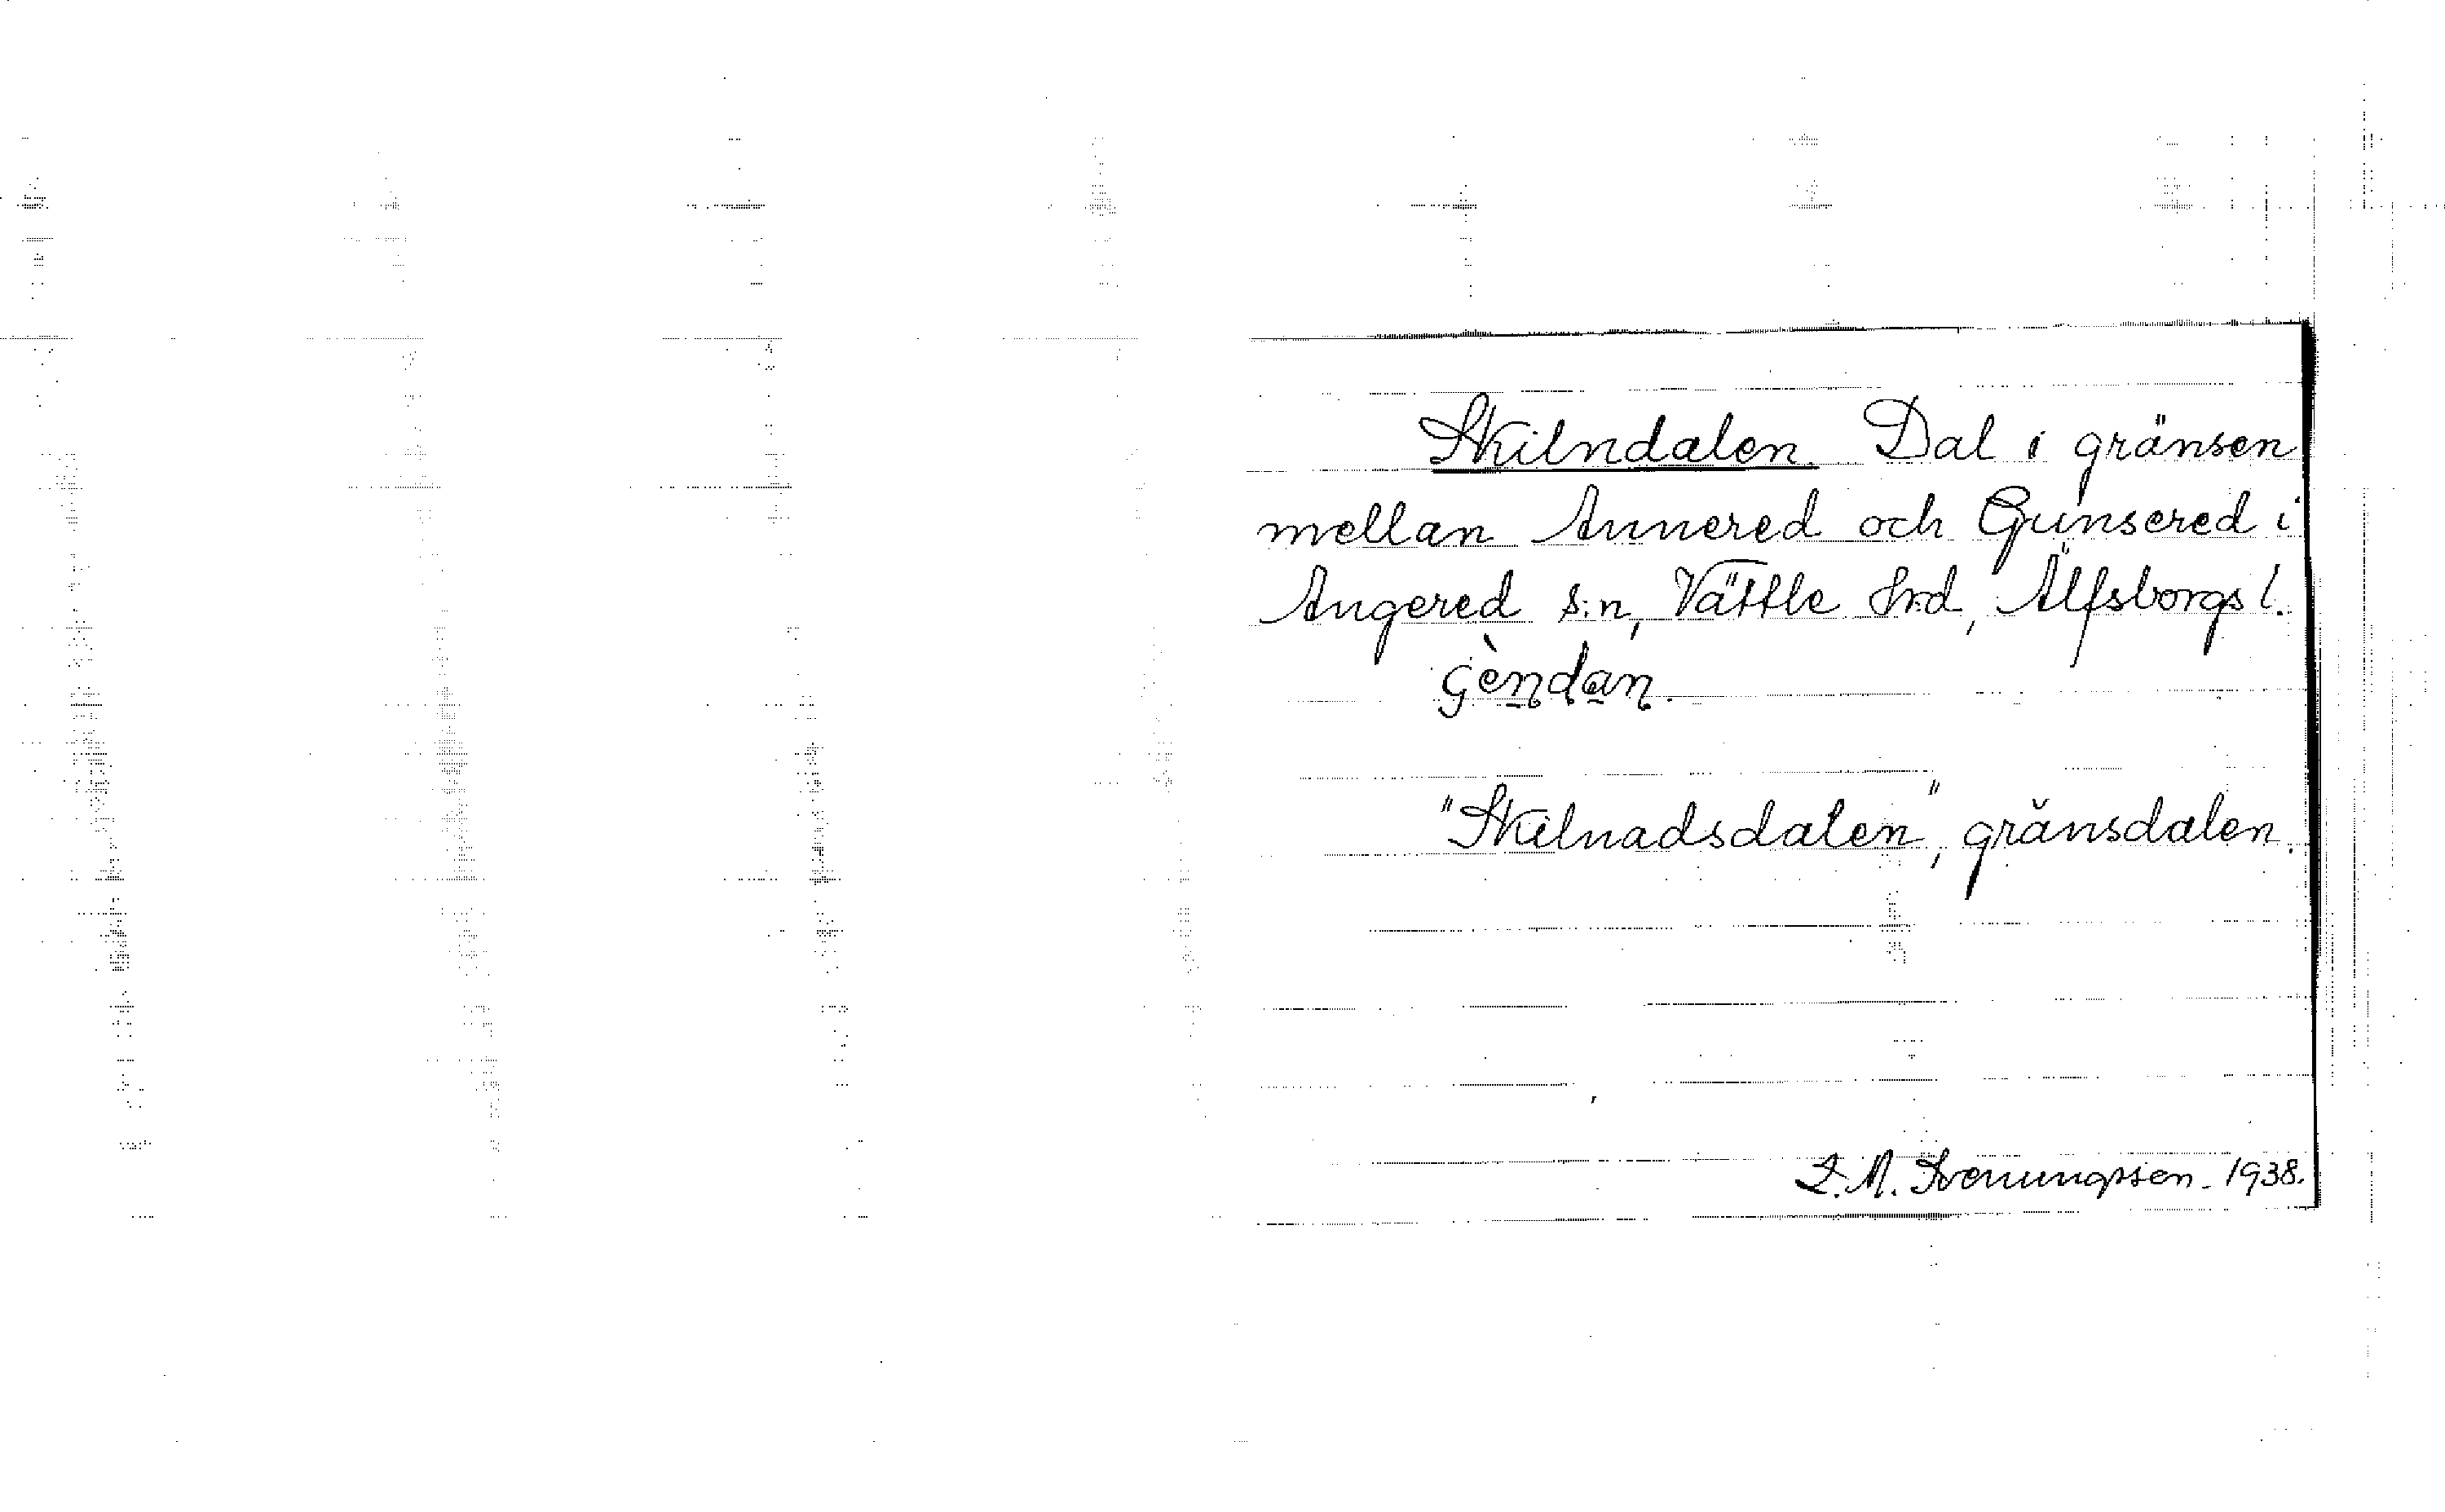 Skilndalen. Dal i gränsen
mellan Annered och Gunsered i
Angered s:n, Vättle hrd, Älfsborgs l.
gèndan.
"Skilnadsdalen", gränsdalen.
1938.